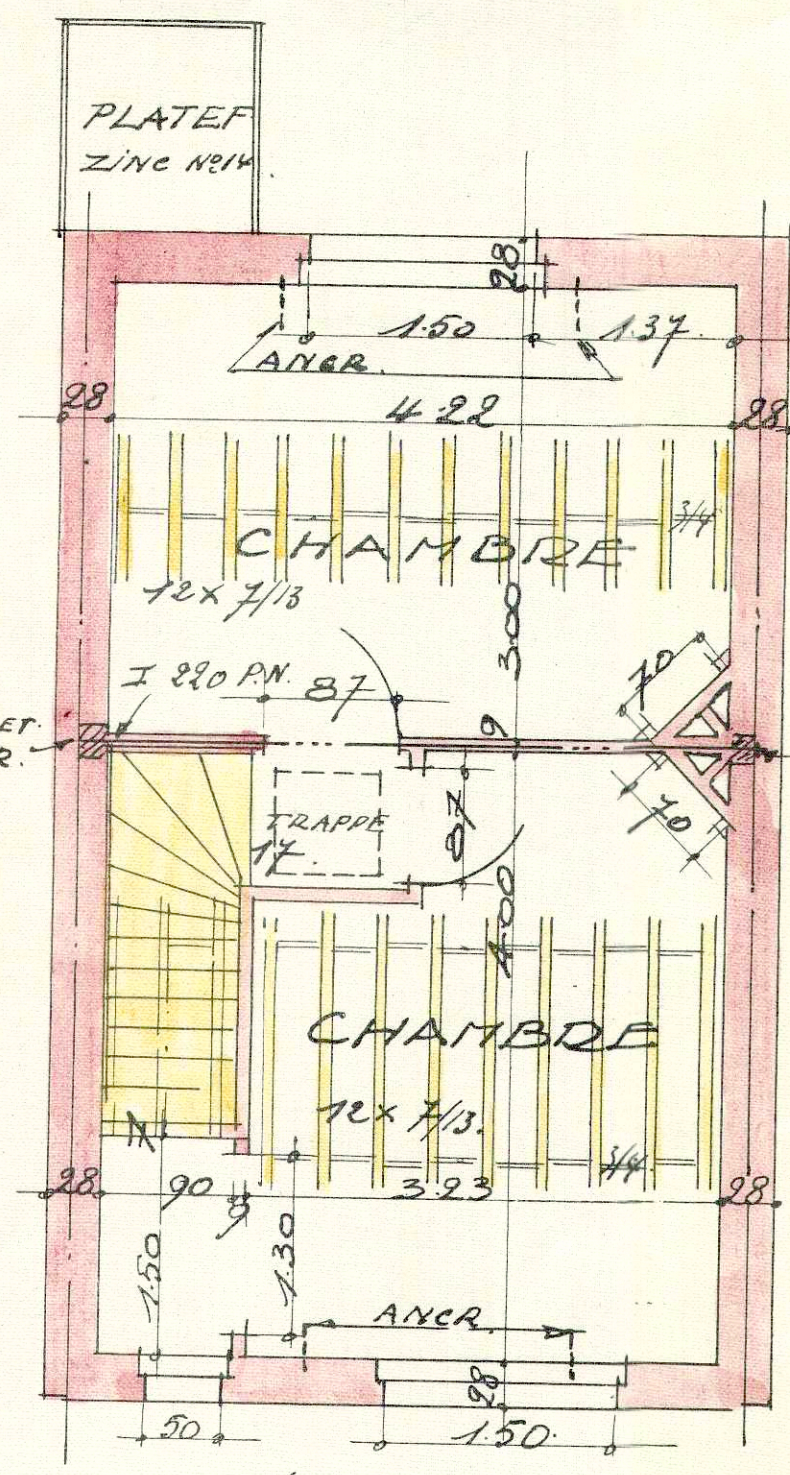 PLATEF
ZINC Nº14
28
1.50
1.37.
ANCR.
28
4.22
28
3/4
CHAMBRE
12 x 7/13
3.00
I 220 P.N.
87
70
9
ET.
R.
TRAPPE
17.
87
70
4.00
CHAMBRE
12 x 7/13.
3/4
28
90
9
3.23
28
1.50
1.30
ANCR.
28
50
1.50.